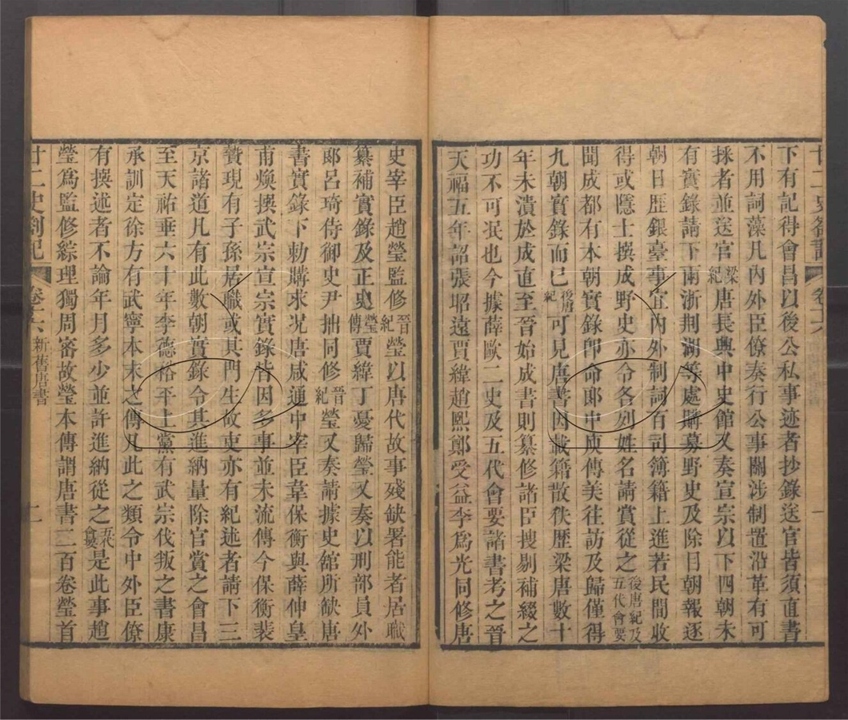 下有記得會昌以後公私事迹者抄錄送官皆須直書
不用詞藻凡內外臣僚奏行公事關涉制置沿革有可
採者並送官梁紀唐長興中史館又奏宣宗以下四朝未
有實錄請下兩浙荆湖等處購募野史及除目朝報逐
朝日歷銀臺事宜內外制詞百司簿籍上進若民間收
得或隱士撰成野史亦令各列姓名請賞從之後唐紀及五代會要
聞成都有本朝實錄卽命郎中庾傳美往訪及歸僅得
九朝實錄而已後唐紀可見唐書因載籍散佚歷梁唐數十
年未潰於成直至晉始成書則纂修諸臣搜剔補綴之
功不可泯也今據薛歐二史及五代會要諸書考之晉
天福五年詔張昭遠賈緯趙熙鄭受益李爲光同修唐
史宰臣趙瑩監修晉紀瑩以唐代故事殘缺署能者居職
纂補實錄及正史瑩傳賈緯丁憂歸瑩又奏以刑部員外
郎呂琦侍御史尹拙同修晉紀瑩又奏請據史館所缺唐
書實錄下勅購求况唐咸通中宰臣韋保衡與薛仲皇
甫煥撰武宗宣宗實錄皆因多事並未流傳今保衡裴
贄現有子孫居職或其門生故吏亦有紀述者請下三
京諸道凡有此數朝實錄令其進納量除官賞之會昌
至天祐垂六十年李德裕平上黨有武宗伐叛之書康
承訓定徐方有武寧本末之傳凡此之類令中外臣僚
有撰述者不論年月多少並許進納從之五代會要是此事趙
瑩爲監修綜理獨周密故瑩本傳謂唐書二百卷瑩首
廿二史劄記 卷十六 新舊唐書 二